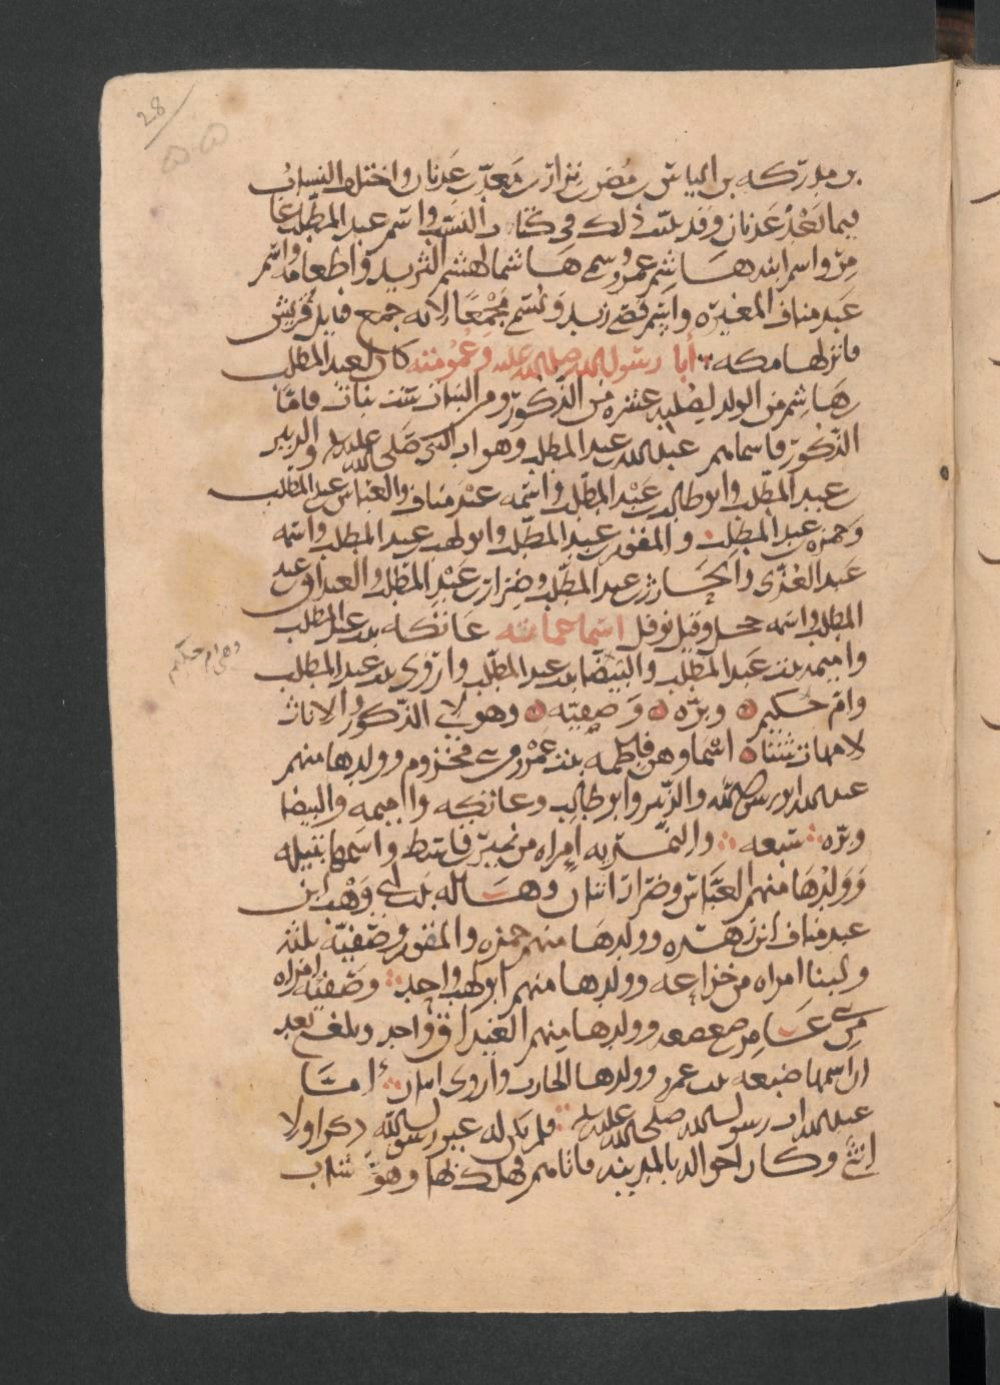 28
بن مدركه بن الياس بن مضر بن نزار بن معدّ بن عدنان واختلف النسابون
فيما بَعْدُ عَدنان وقد بينت ذلك في كتاب النسب واسم عبد المطّلب عا
مِرٌ واسم ابنه هاشم عمرو وسمي هاشما لهشم الثريد واطعامه واسم
عَبد مناف المغيره واسم قصي زيد ويُسمّى مُجمِّعًا لانه جمع قبايل قريش
فانزلها مكه أبا رسول الله صلى الله عليه وعُمومته كان لعبد المطلب
بن هاشم من الولد لصُلبه عشره من الذكور ومن البنات ستّ بنات فامّا
الذكور فاسماهم عبد الله بن عبد المطلب وهو اب النبي صَلى الله عليه والزبير
بن عبد المطّلب وابو طالب بن عَبْد المطّلب واسمه عبْد مَناف والعبّاس بن عبد المطلب
وحمزه بن عبد المطّلب والمقوّم بن عبد المطّلب وابو لهب بن عبد المطلب واسمه
عَبد العُزّى والحارث بن عبد المطّلب وضِرَار بن عَبْد المطّلب والغيداق بن عبد
المطلب واسمه حجل وقيل نوفل اسما عماته عاتكه بنت عبد المطلب
واميمه بنت عَبد المطّلب والبَيضا بنت عبد المطّلب واروى بنت عبد المطلب
وهي ام حكيم
وام حكيم وبرّه وصفيّه وهولاي الذكور والاناث
لامهات شتّى اسماوهن فاطمه بنت عَمْرو من بني مخزوم وولدها منهم
عبد الله ابو رسول الله والزّبير وابو طالب وعاتكه واميمه والبيضا
وبرّه سبعه والنمريه امراه من نمير بن قاسط واسمها نتيله
وَوَلدُهَا منهم العبّاس وضرار اثنان وهاله بنت وهْب بن
عبد مناف بن زهره وولدها منهم حمزه والمقوم وصَفيّه ثلثه
ولبنا امراه من خزاعه وولدها منهم ابو لهب واحد وصَفيّه امراه
من بني عَامِر بن صعصعه وولدها مِنهم الغيداق واحد وبلغني بعد
ان اسمها بنت عمرو وولدها الحارث واروى اثنان امّا
عبد الله اب رسول الله صلى الله عليه فلم يكن له غير رسول الله ذكرا ولا
انثى وكان اخواله بالمدينه فاتاهم فهلك بها وهو شاب